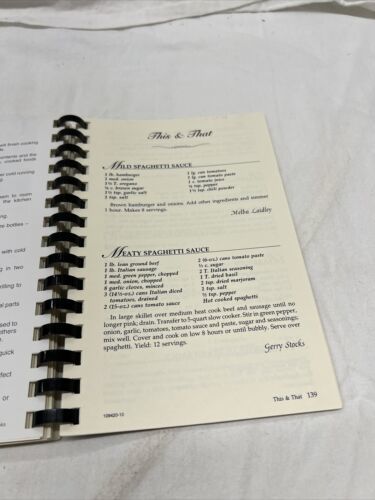 ll finish cooking
onents and the
cooked foods
cold running
to room
the kitchen
re bottles –
with cold
g in two
rding to
al parts
sed to
others
quick
fect
or
ks
This & That
MILD SPAGHETTI SAUCE
1 lb. hamburger
1 med. onion
1½ T. oregano
¼ c. brown sugar
1½ tsp. garlic salt
1 tsp. salt
1 lg. can tomatoes
1 lg. can tomato paste
1 c. tomato juice
½ tsp. pepper
1½ tsp. chili powder
Brown hamburger and onions. Add other ingredients and simmer
1 hour. Makes 8 servings.
Melba Laidley
MEATY SPAGHETTI SAUCE
1 lb. lean ground beef
1 lb. Italian sausage
1 med. green pepper, chopped
1 med. onion, chopped
8 garlic cloves, minced
3 (14½-oz.) cans Italian diced
tomatoes, drained
2 (15-oz.) cans tomato sauce
2 (6-oz.) cans tomato paste
⅓ c. sugar
2 T. Italian seasoning
1 T. dried basil
2 tsp. dried marjoram
1 tsp. salt
½ tsp. pepper
Hot cooked spaghetti
In large skillet over medium heat cook beef and sausage until no
longer pink; drain. Transfer to 5-quart slow cooker. Stir in green pepper,
onion, garlic, tomatoes, tomato sauce and paste, sugar and seasonings;
mix well. Cover and cook on low 8 hours or until bubbly. Serve over
spaghetti. Yield: 12 servings.
Gerry Stocks
109420-10
This & That 139